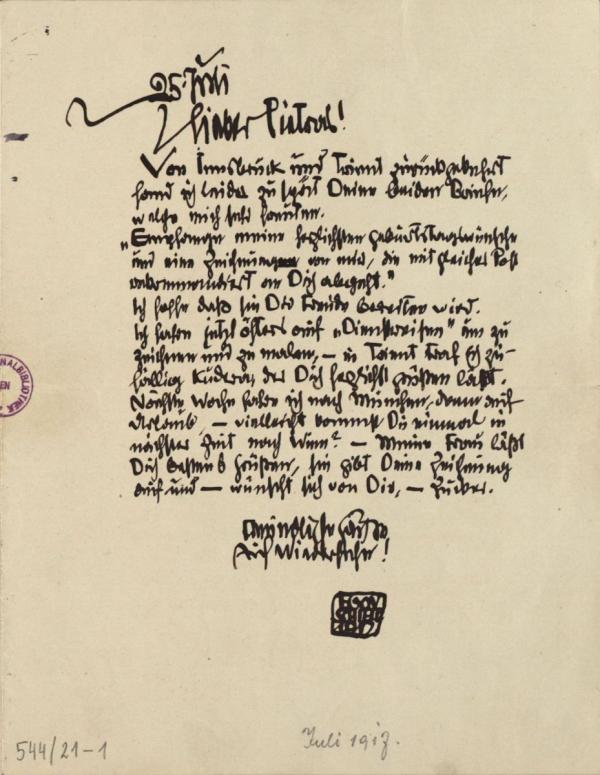 25. Juli
Lieber Pietras!
Von Innsbruck und Trient zurückgekehrt
fand ich leider zu spät Deine beiden Briefe,
welche mich sehr freuten.
„Empfange meine herzlichsten Geburtstagswünsche
und eine Zeichnung von mir, die mit gleicher Post
rekommandiert an Dich abgeht."
Ich hoffe daß sie Dir Freude bereiten wird.
Ich fahre jetzt öfters auf „Dienstreisen" um zu
zeichnen und zu malen, — in Trient traf ich zu-
fällig der Dich herzlichst grüßen läßt.
Nächste Woche fahre ich nach München, dann auf
Urlaub, — vielleicht kommst Du einmal in
nächster Zeit nach Wien? — Meine Frau läßt
Dich bestens grüßen, sie gibt Deine Zeichnung
auf und — wünscht sich von Dir, — Zucker.
Grüße,
Auf Wiedersehn!
EGON
SCHIE
544/21-1
Juli 1917.